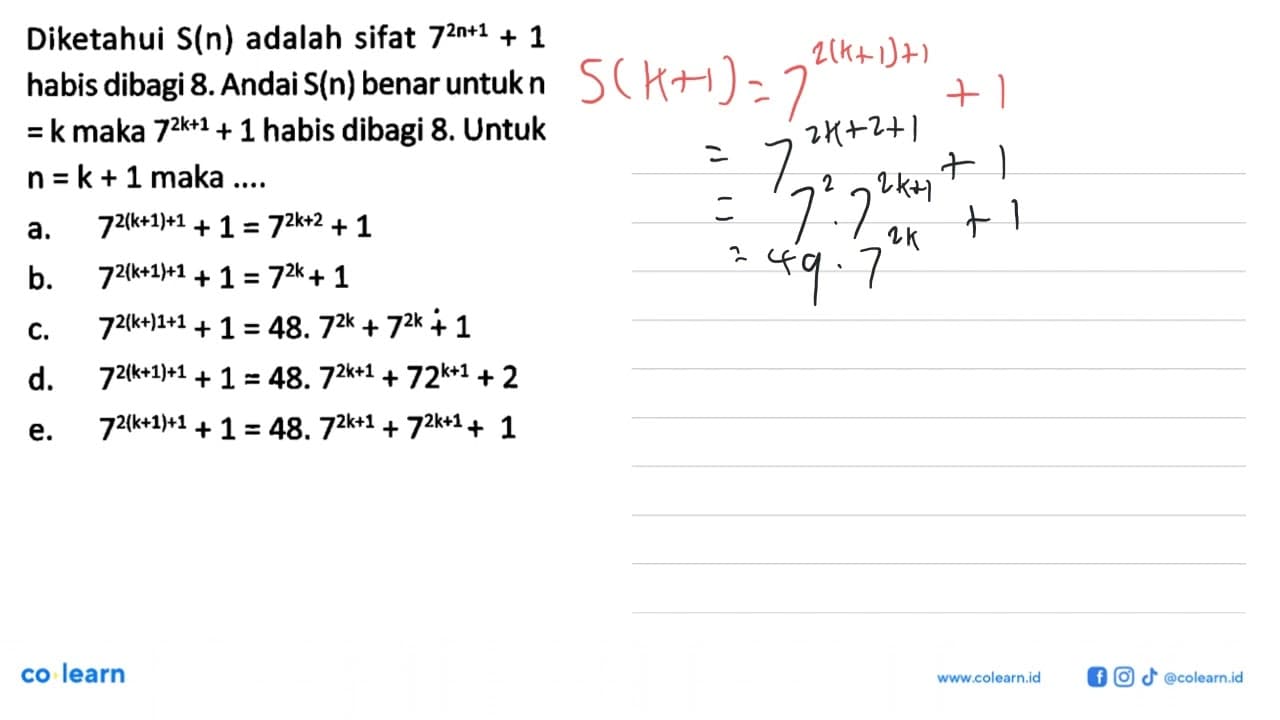 Diketahui S(n) adalah sifat 7^{2n+1} + 1
habis dibagi 8. Andai S(n) benar untuk n
= k maka 7^{2k+1} + 1 habis dibagi 8. Untuk
n = k + 1 maka ....
a. 7^{2(k+1)+1} + 1 = 7^{2k+2} + 1
b. 7^{2(k+1)+1} + 1 = 7^{2k} + 1
c. 7^{2(k+)1+1} + 1 = 48. 7^{2k} + 7^{2k} + 1
d. 7^{2(k+1)+1} + 1 = 48. 7^{2k+1} + 72^{k+1} + 2
e. 7^{2(k+1)+1} + 1 = 48. 7^{2k+1} + 7^{2k+1} + 1
S(k+1) = 7^{2(k+1)+1} + 1
= 7^{2k+2+1} + 1
= 7^2 . 7^{2k+1} + 1
= 49 . 7^{2k}
co learn
www.colearn.id
@colearn.id